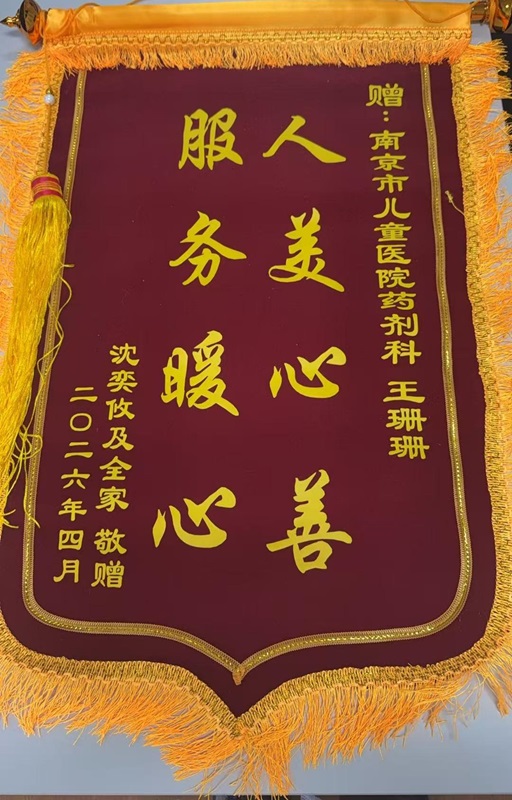 赠：南京市儿童医院药剂科 王珊珊
人美心善
服务暖心
沈奕攸及全家 敬赠
二〇二六年四月